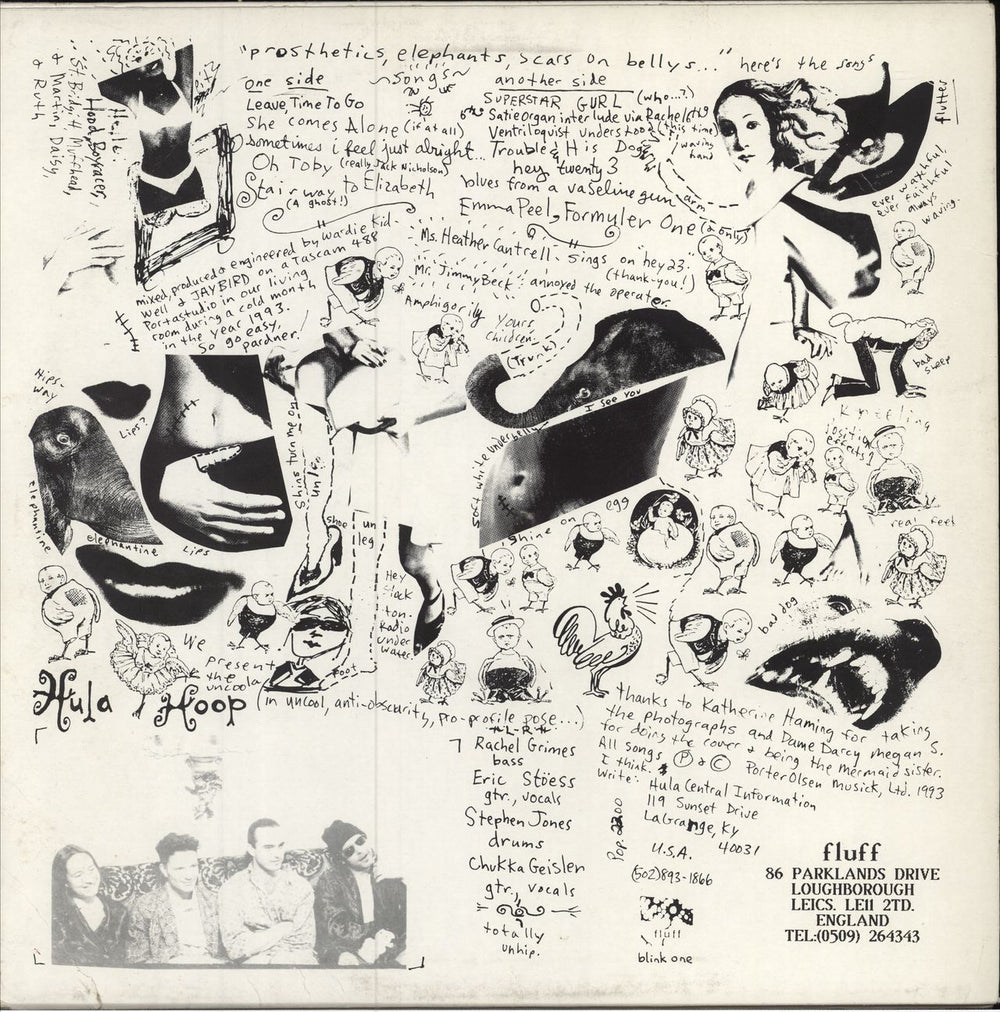 "prosthetics, elephants, scars on bellys..." here's the songs
~songs~
one side
Leave Time To Go
She comes Alone (if at all)
sometimes i feel just alright...
Oh Toby (really Jack Nicholson)
Stairway to Elizabeth
(A ghost!)
another side
SUPERSTAR GURL (who..?)
Satie Organ interlude via Rachel
Ventriloquist Understood (this time)
Trouble & His Dog
hey twenty 3
blues from a vaseline gun
Emma Peel, Formyler One (& only)
waving hand
arm
flutter
ever watchful
ever faithful
always
waving.
Hoodboyracer,
St. Bridgit Muffhead,
& Martin, Daisy,
& Ruth
mixed, produced & engineered by Wardie Kid-
well & JAYBIRD on a Tascam 488
Portastudio in our living
room during a cold month
in the year 1993.
So go easy,
pardner!
Ms. Heather Cantrell - sings on hey 23.
(thank-you!)
Mr. Jimmy Beck annoyed the operator.
Amphigorily
Yours
children
(Trunk)
I see you
soft white underbelly
bad
sheep
Kneeling
position
effects?
real feel
Hips-
way
Lips?
elephantine
elephantine Lips
Shins turn me on
un leg
shoe
un
leg
Hey
Slack
ton-
Radio
under
water.
foot
shine on egg
bad dog
We
present
the
uncola
Hula Hoop (in uncool, anti-obscurity, pro-profile pose...)
L-R
Rachel Grimes
bass
Eric Stoess
gtr., vocals
Stephen Jones
drums
Chukka Geislen
gtr., vocals
totally
unhip.
thanks to Katherine Haming for taking
the photographs and Dame Darcy megan S.
for doing the cover & being the mermaid sister.
All songs Ⓟ & © PorterOlsen Musick, Ltd. 1993
I think.
Write: Hula Central Information
119 Sunset Drive
LaGrange, Ky
U.S.A. 40031
(502)893-1866
Pop
fluff
blink one
fluff
86 PARKLANDS DRIVE
LOUGHBOROUGH
LEICS. LE11 2TD.
ENGLAND
TEL:(0509) 264343